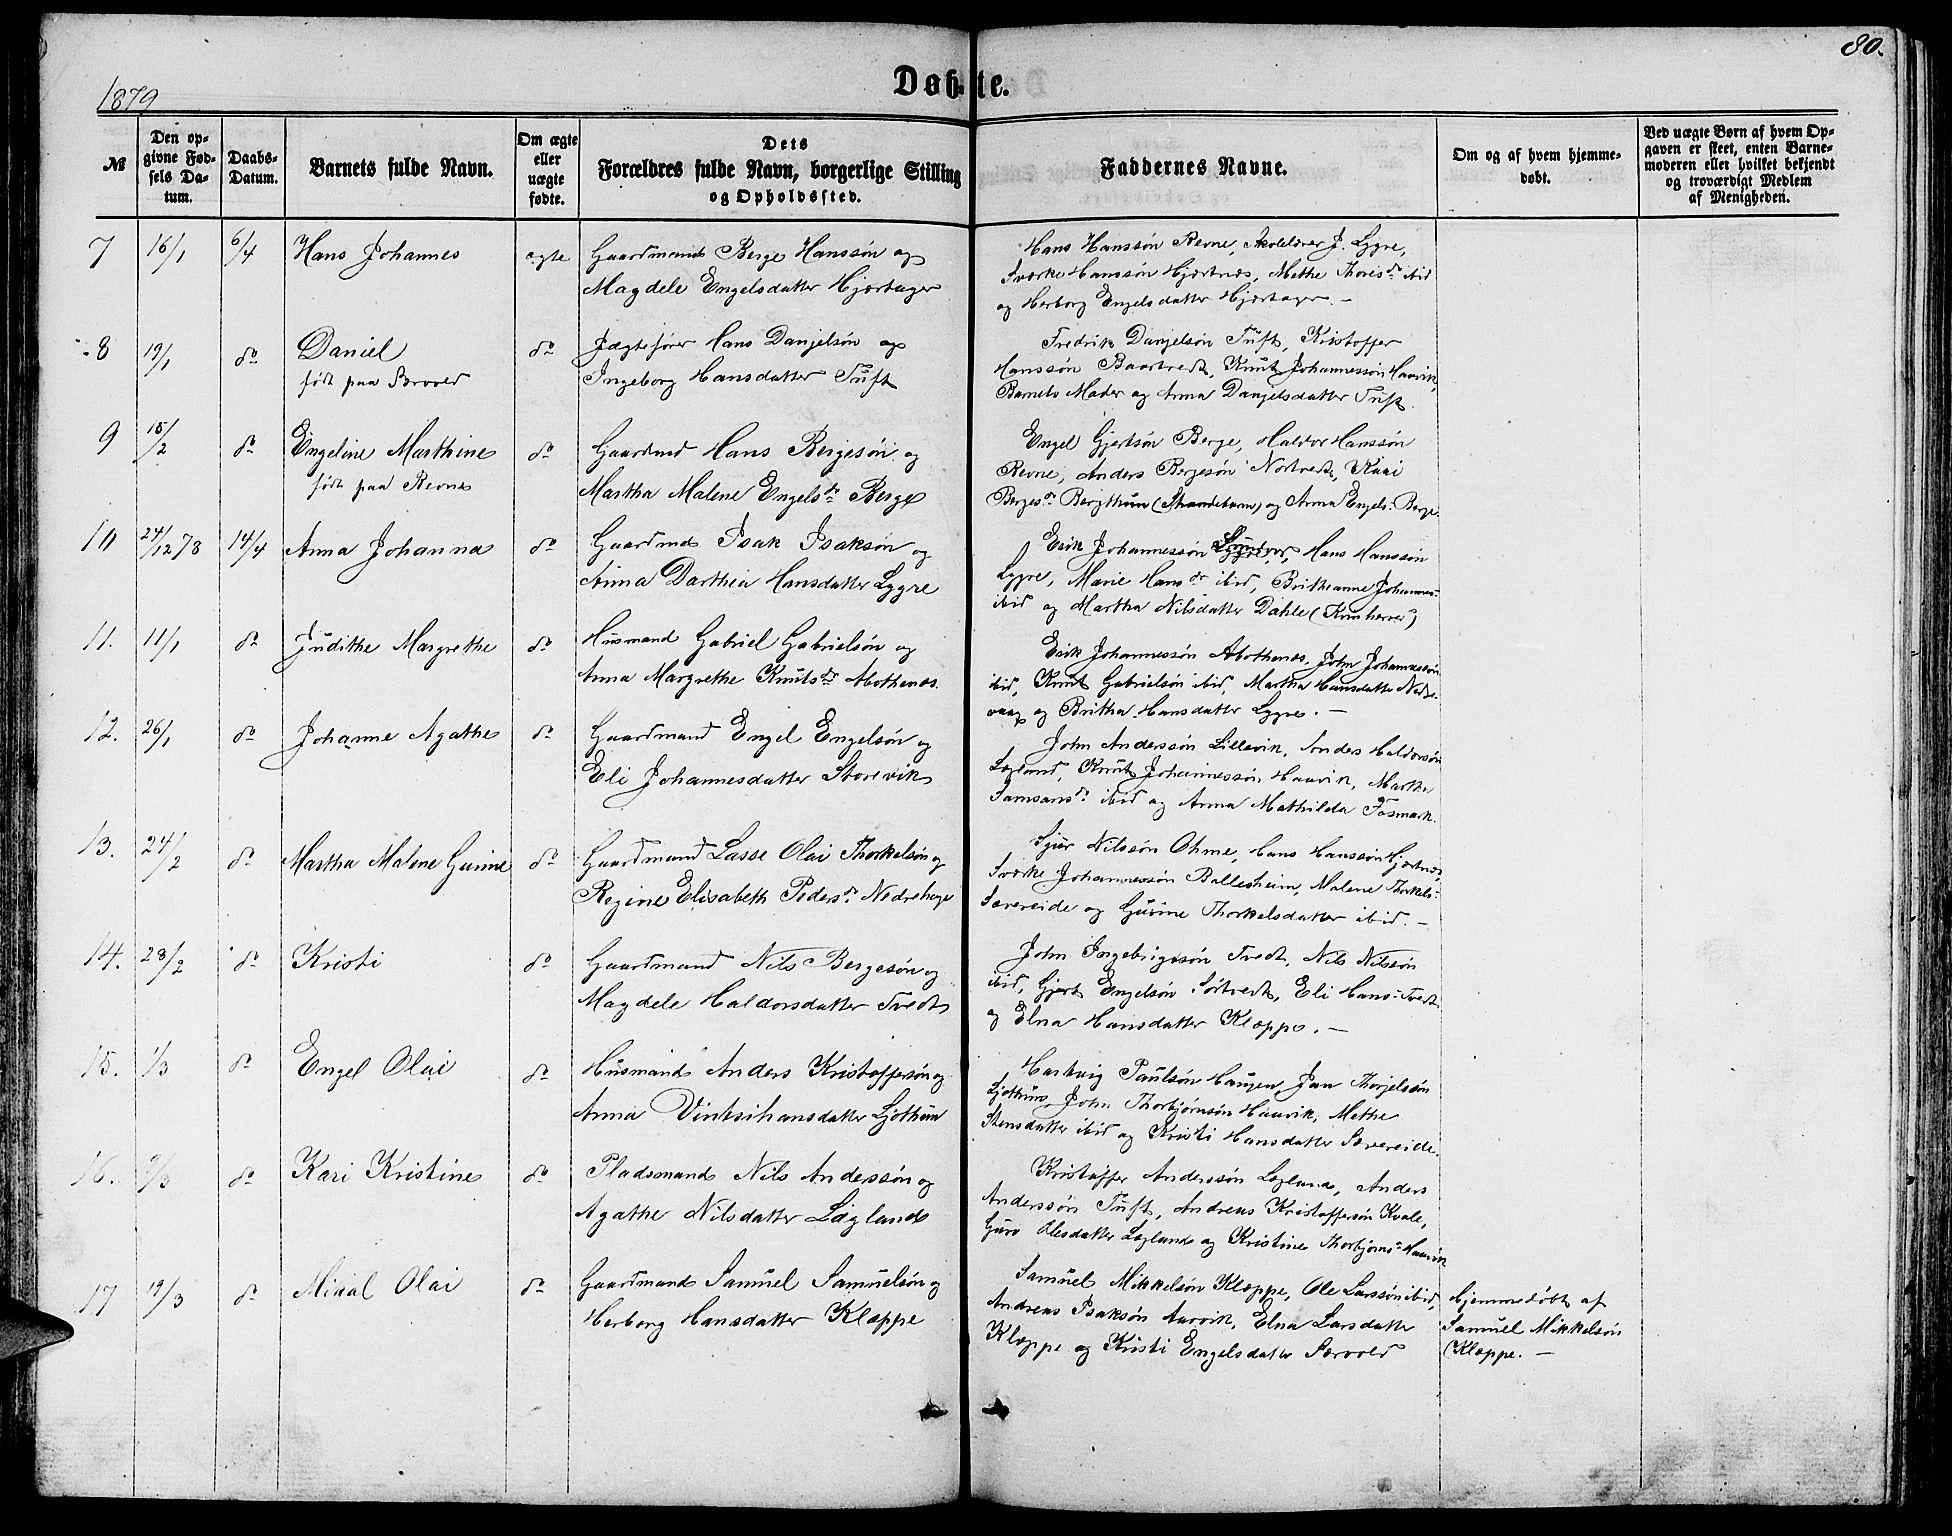 80.
1879
Døbte.
№
Den opgivne Fødsels Datum.
Daabs-Datum.
Barnets fulde Navn.
Om ægte eller uægte fødte.
Dets Forældres fulde Navn, borgerlige Stilling og Opholdssted.
Faddernes Navne.
Om og af hvem hjemmedøbt.
Ved uægte Børn af hvem Opgaven er skeet, enten Barnemoderen eller hvilket bekjendt og troværdigt Medlem af Menigheden.
7 16/1 6/4 Hans Johannes ægte Gaardmand Berge Hanssøn og
Magdele Engelsdatter Hjørtager
Hans Hanssøn Revne, Skolelærer J. Lygre,
Sværke Hanssøn Hjørtnæs, Methe Thoresdr ibid
og Herborg Engelsdatter Hjørtager. —
8 19/1 do Daniel do Jægtefører Hans Danjelsøn og
født paa Sørvold Ingeborg Hansdatter Tuft
Fredrik Danjelsøn Tuft, Kristoffer
Hanssøn Baartvedt, Knut Johannessøn Haavik,
Barnets Moder og Anna Danjelsdatter Tuft.
9 15/2 do Engeline Marthine do Gaardmd Hans Bergesøn og
født paa Revne Martha Malene Engelsdr Berge
Engel Gjertsøn Berge, Haldor Hanssøn
Revne, Anders Bergesøn Nortvedt, Kari
Bergesdr Bergthun (Strandebarm) og Anna Engels- Berge.
10 24/12 78 14/4 Anna Johanna do Gaardmd Isak Isaksøn og
Anna Darthea Hansdatter Lygre
Erik Johannessøn Hans Hanssøn
Lygre, Marie Hansdr ibid, Brithe Johannes-
ibid og Martha Nilsdatter Dahle (Kvinherred)
11. 11/1 do Judithe Margrethe do Husmand Gabriel Gabrielsøn og
Anna Margrethe Knutsdr Abothenæs.
Erik Johannessøn Abothenæs, John Johannessøn
ibid, Knut Gabrielsøn ibid, Martha Hansdatter
og Britha Hansdatter Lygre. —
12. 26/1 do Johanne Agathe do Gaardmand Engel Engelsøn og
Eli Johannesdatter Storevik
John Anderssøn Lillevik, Anders Haldorsøn
Lægland, Knut Johannessøn Haavik, Martha
Samsonsdr ibid og Anna Mathilda Fosmark.
13. 24/2 do Martha Malene Gurine do Gaardmand Lasse Olai Thorkelsøn og
Regine Elisabeth Pedersdr Nedrehage
Sjur Nilssøn Ohme, Hans Hanssøn Hjørtnæs,
Sværke Johannessøn Ballesheim, Malene Thorkels-
Særereide og Gurine Thorkelsdatter ibid. —
14. 28/2 do Kristi do Gaardmand Nils Bergesøn og
Magdele Haldorsdatter Tvedt
John Ingebrigtsøn Tvedt, Nils Nilssøn
ibid, Gjert Engelsøn Sørtvedt, Eli Hans- Tvedt
og Elna Hansdatter Kleppe. —
15. 1/3 do Engel Olai do Husmand Anders Kristoffersøn og
Anna Hansdatter Ljothun
Hartvig Paulsøn Haugen, Jan
Ljothun, John Thorbjørnsøn Haavik, Methe
Stensdatter ibid og Kristi Hansdatter Særereide.
16. 9/3 do Kari Kristine do Pladsmand Nils Anderssøn og
Agathe Nilsdatter Lægland
Kristoffer Anderssøn Lægland, Anders
Anderssøn Tuft, Andreas Kristoffersøn Kvale,
Guro Olesdatter Lægland og Kristine Thorbjørns- Haavik
17 19/3 do Mikal Olai do Gaardmand Samuel Samuelsøn og
Herborg Hansdatter Klæppe
Samuel Mikkelsøn Klæppe, Ole Larssøn ibid,
Andreas Isaksøn Aarvik, Elna Larsdatter
Klæppe og Kristi Engelsdatter Sørvold
Hjemmedøbt af
Samuel Mikkelsøn
Klæppe. —